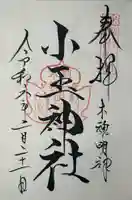 奉拝
未魂明神
小玉神社
令和六年二月二十一日